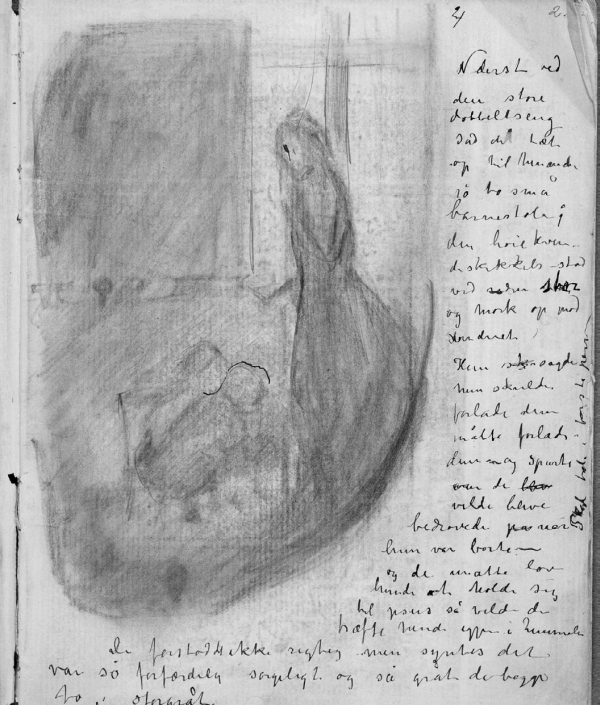 2/ 2.
Nederst ved
den store
dobbeltseng
sad de tæt
op til hinanden
på to små
barnestole;
den høie kvin-
deskikkelse stod
ved stor
og mørk op mod
vinduet.
Hun sagde
hun skulde
forlade dem
måtte forlade
dem og spurte
om de
vilde blive
bedrøvede når
hun var borte –
og de måtte love
hende at holde sig
til Jesus så vilde de
træffe hende igjen i himmelen
De forstod det ikke rigtig men syntes det
var så forfærdelig sørgeligt og så gråt de begge
to i storgråt.